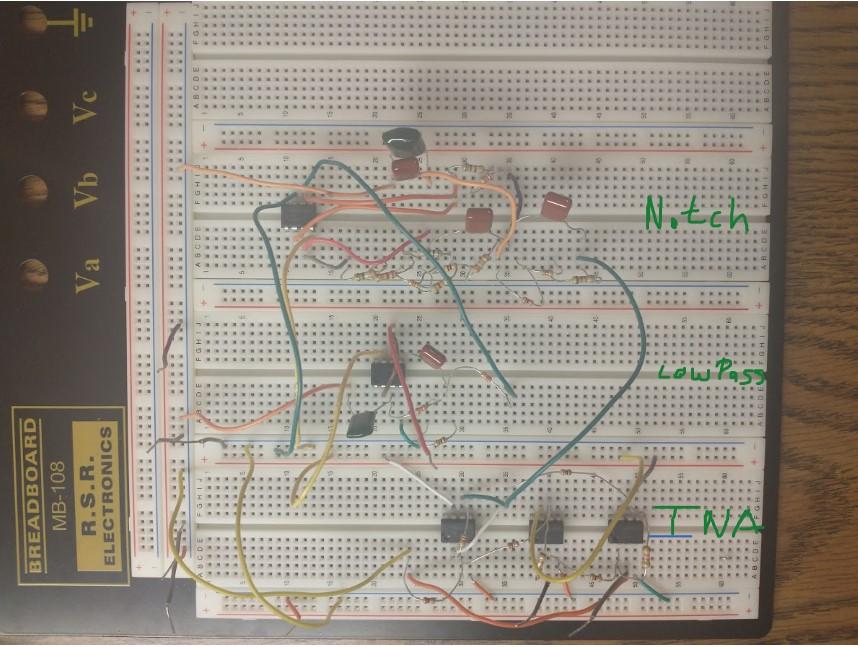 Vc
Vb
Va
Notch
Low Pass
TNA
BREADBOARD
MB-108
R.S.R.
ELECTRONICS